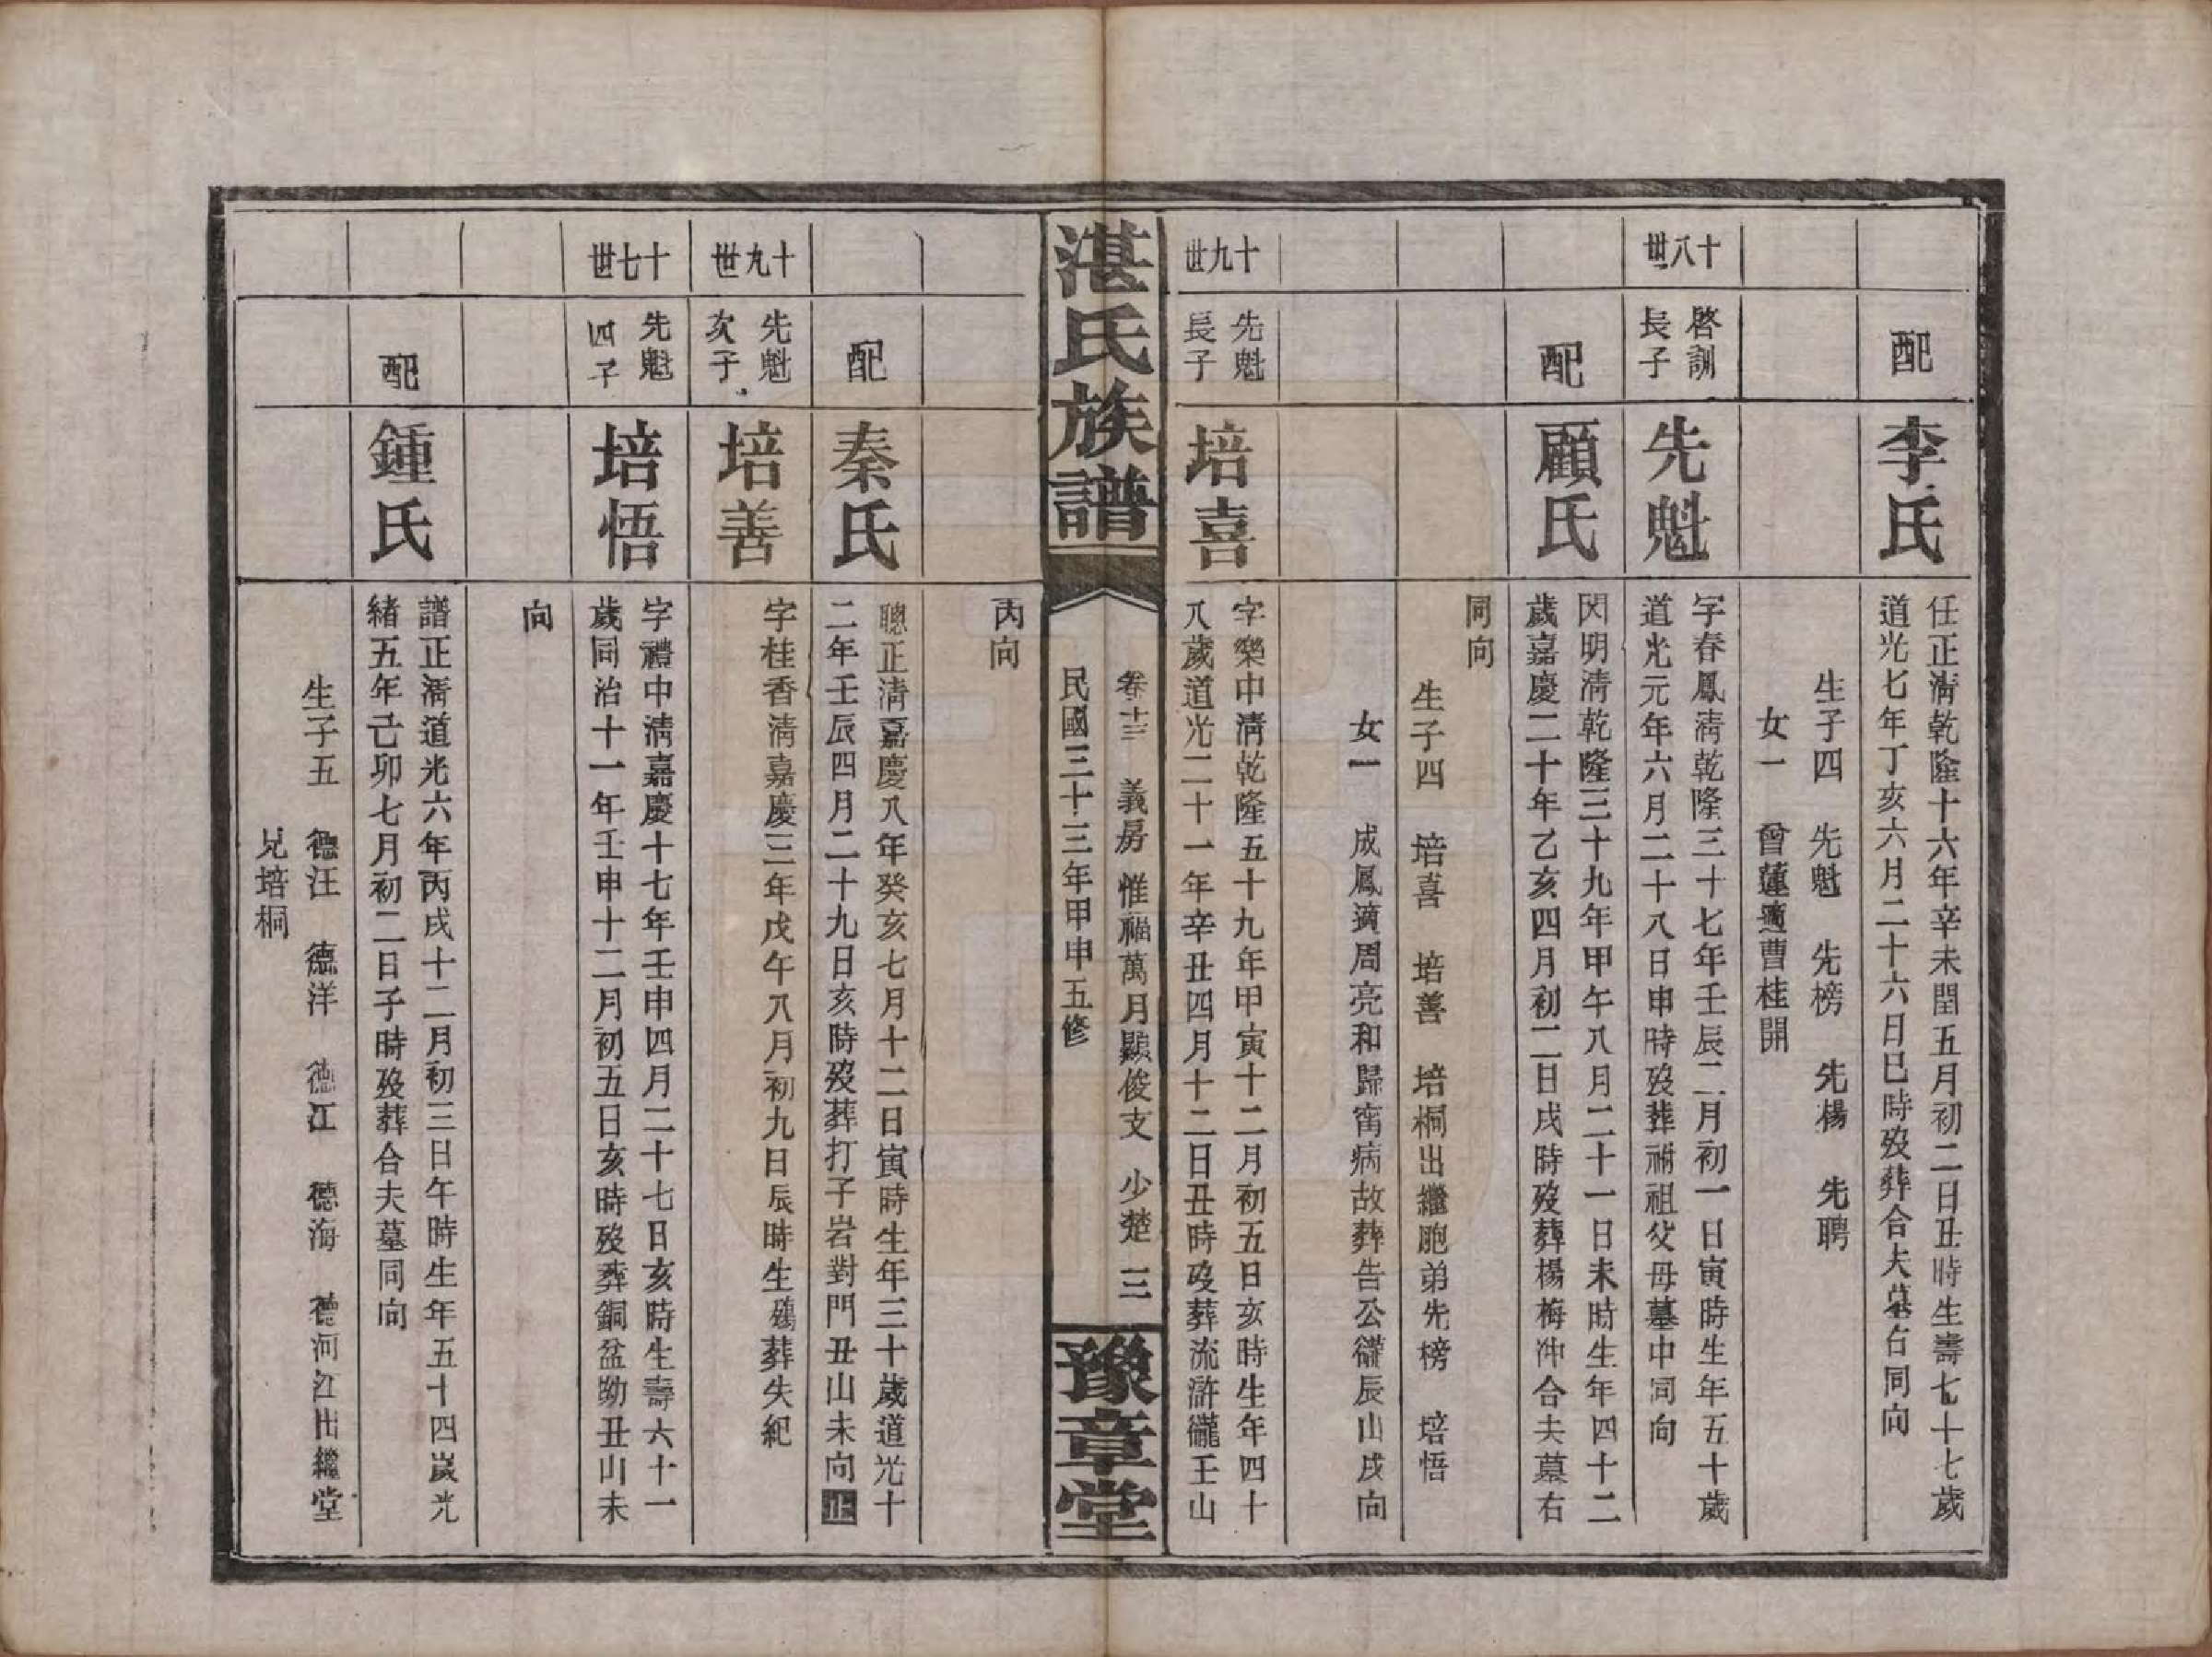 配
李氏
任正淸乾隆十六年辛未閏五月初二日丑時生壽七十七歲
道光七年丁亥六月二十六日巳時歿葬合夫墓右同向
生子四　先魁　先榜　先楊　先聘
女一　曾蓮適曹桂開
十八世
啓訓
長子
先魁
字春鳳淸乾隆三十七年壬辰二月初一日寅時生年五十歲
道光元年六月二十八日申時歿葬祔祖父母墓中同向
配
顧氏
閃明淸乾隆三十九年甲午八月二十一日未時生年四十二
歲嘉慶二十年乙亥四月初二日戌時歿葬楊梅冲合夫墓右
同向
生子四　培喜　培善　培桐出繼胞弟先榜　培悟
女一　成鳳適周亮和歸甯病故葬告公嶐辰山戌向
十九世
先魁
長子
培喜
字樂中淸乾隆五十九年甲寅十二月初五日亥時生年四十
八歲道光二十一年辛丑四月十二日丑時歿葬流滸巃壬山
湛氏族譜
卷十三　義房　惟福萬月顯俊支　少楚　三
民國三十三年甲申五修
豫章堂
丙向
配
秦氏
聰正淸嘉慶八年癸亥七月十二日寅時生年三十歲道光十
二年壬辰四月二十九日亥時歿葬打子岩對門丑山未向正
十九世
先魁
次子
培善
字桂香淸嘉慶三年戊午八月初九日辰時生殤葬失紀
十七世
先魁
四子
培悟
字禮中淸嘉慶十七年壬申四月二十七日亥時生壽六十一
歲同治十一年壬申十二月初五日亥時歿葬銅盆坳丑山未
向
配
鍾氏
譜正淸道光六年丙戌十二月初三日午時生年五十四歲光
緒五年己卯七月初二日子時歿葬合夫墓同向
生子五　德汪　德洋　德江　德海　德河江出繼堂
兄培桐